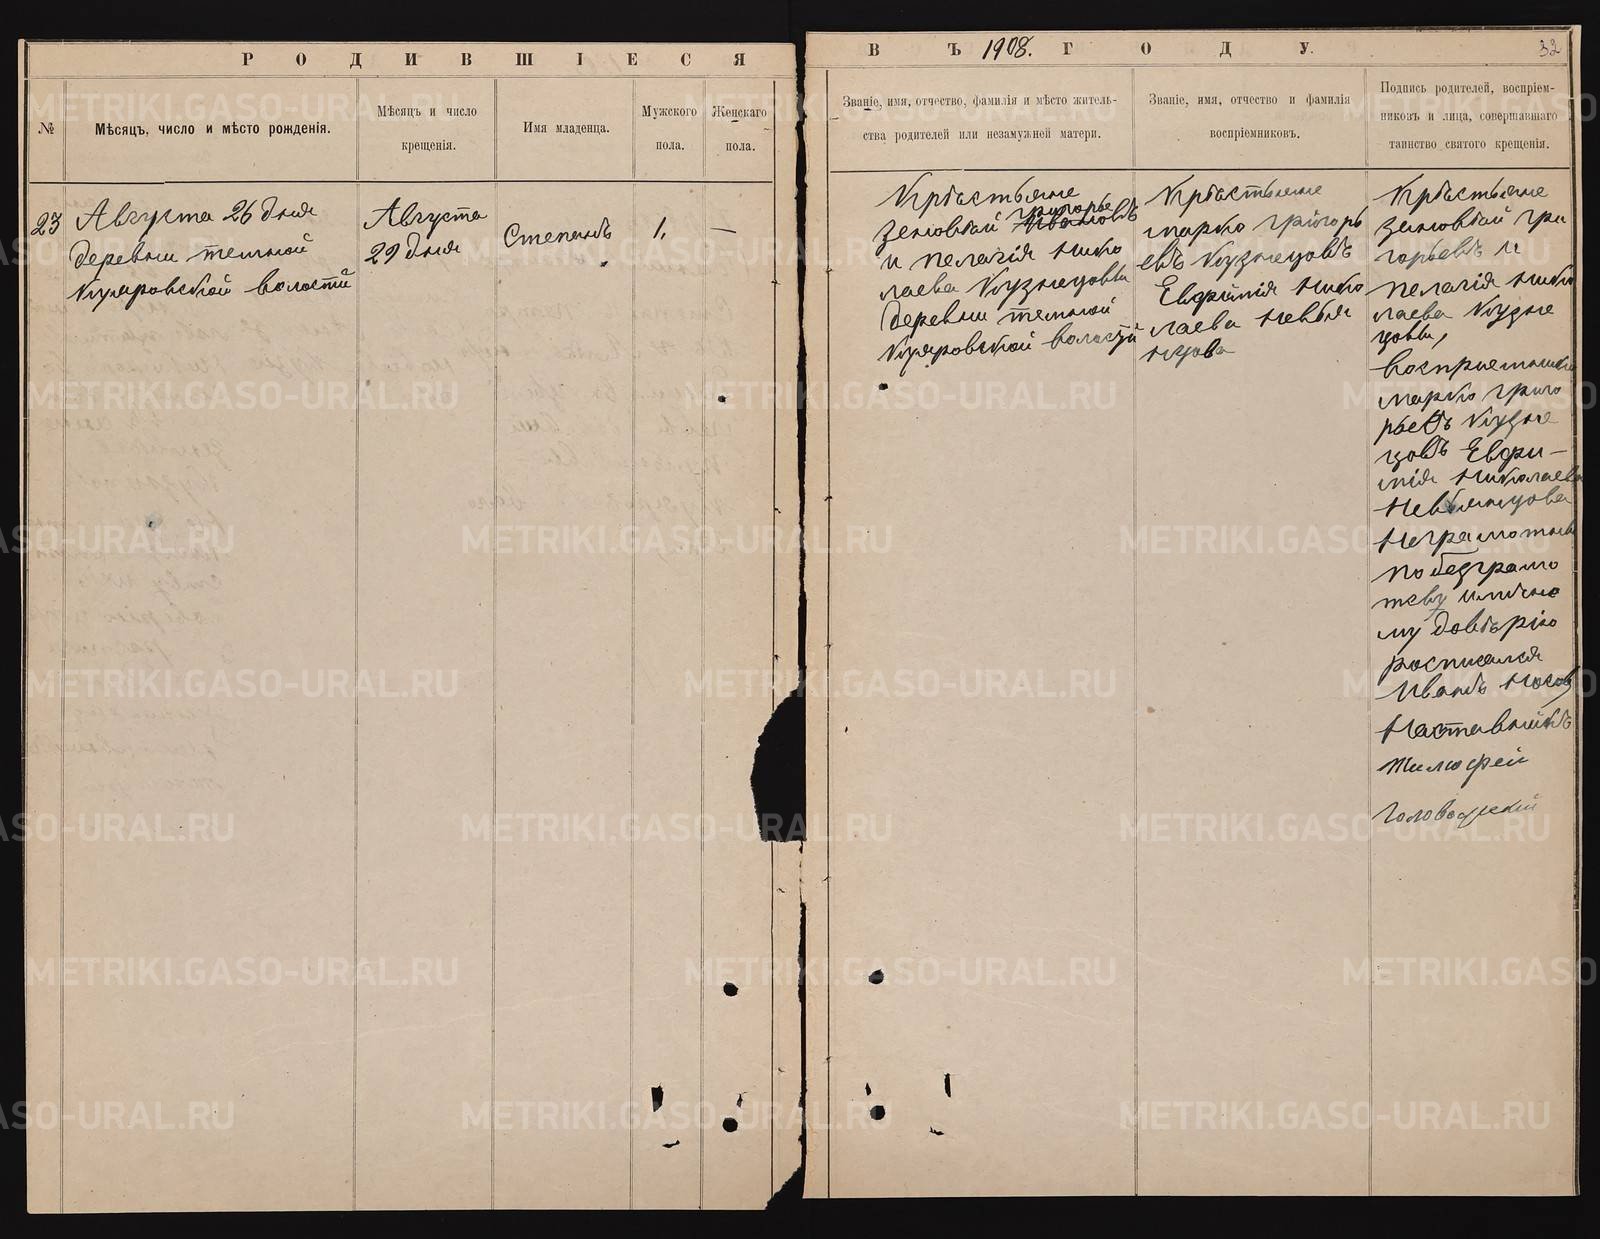 РОДИВШІЕСЯ
ВЪ 1908. ГОДУ.
32
№
Мѣсяцъ, число и мѣсто рожденія.
Мѣсяцъ и число
крещенія.
Имя младенца.
Мужского
пола.
Женскаго
пола.
Званіе, имя, отчество, фамилія и мѣсто житель-
ства родителей или незамужней матери.
Званіе, имя, отчество и фамилія
воспріемниковъ.
Подпись родителей, воспріем-
никовъ и лица, совершавшаго
таинство святого крещенія.
23
Августа 26 дня
деревни темной
волости
Августа
29 дня
Степанъ
1.
—
Крѣстьяне
григорье
зеновѣй Ивановъ
и пелагія нико
лаева Кузнецовы
деревни темной
волости
Крѣстьяне
марко григорь
евъ Кузнецовъ
Евфимія нико
лаева невья
нцова
Крѣстьяне
зиновѣй гри
горьевъ и
пелагія нико
лаева Кузне
цовы,
восприемники
марко григо
рьевъ Кузне
цовъ Евфи-
мія николаева
Невьянцова
Неграмотны
по безграмо
тсву илично
му довѣрію
росписался
Иванъ Носов
Наставникъ
Тимофей
METRIKI.GASO-URAL.RU